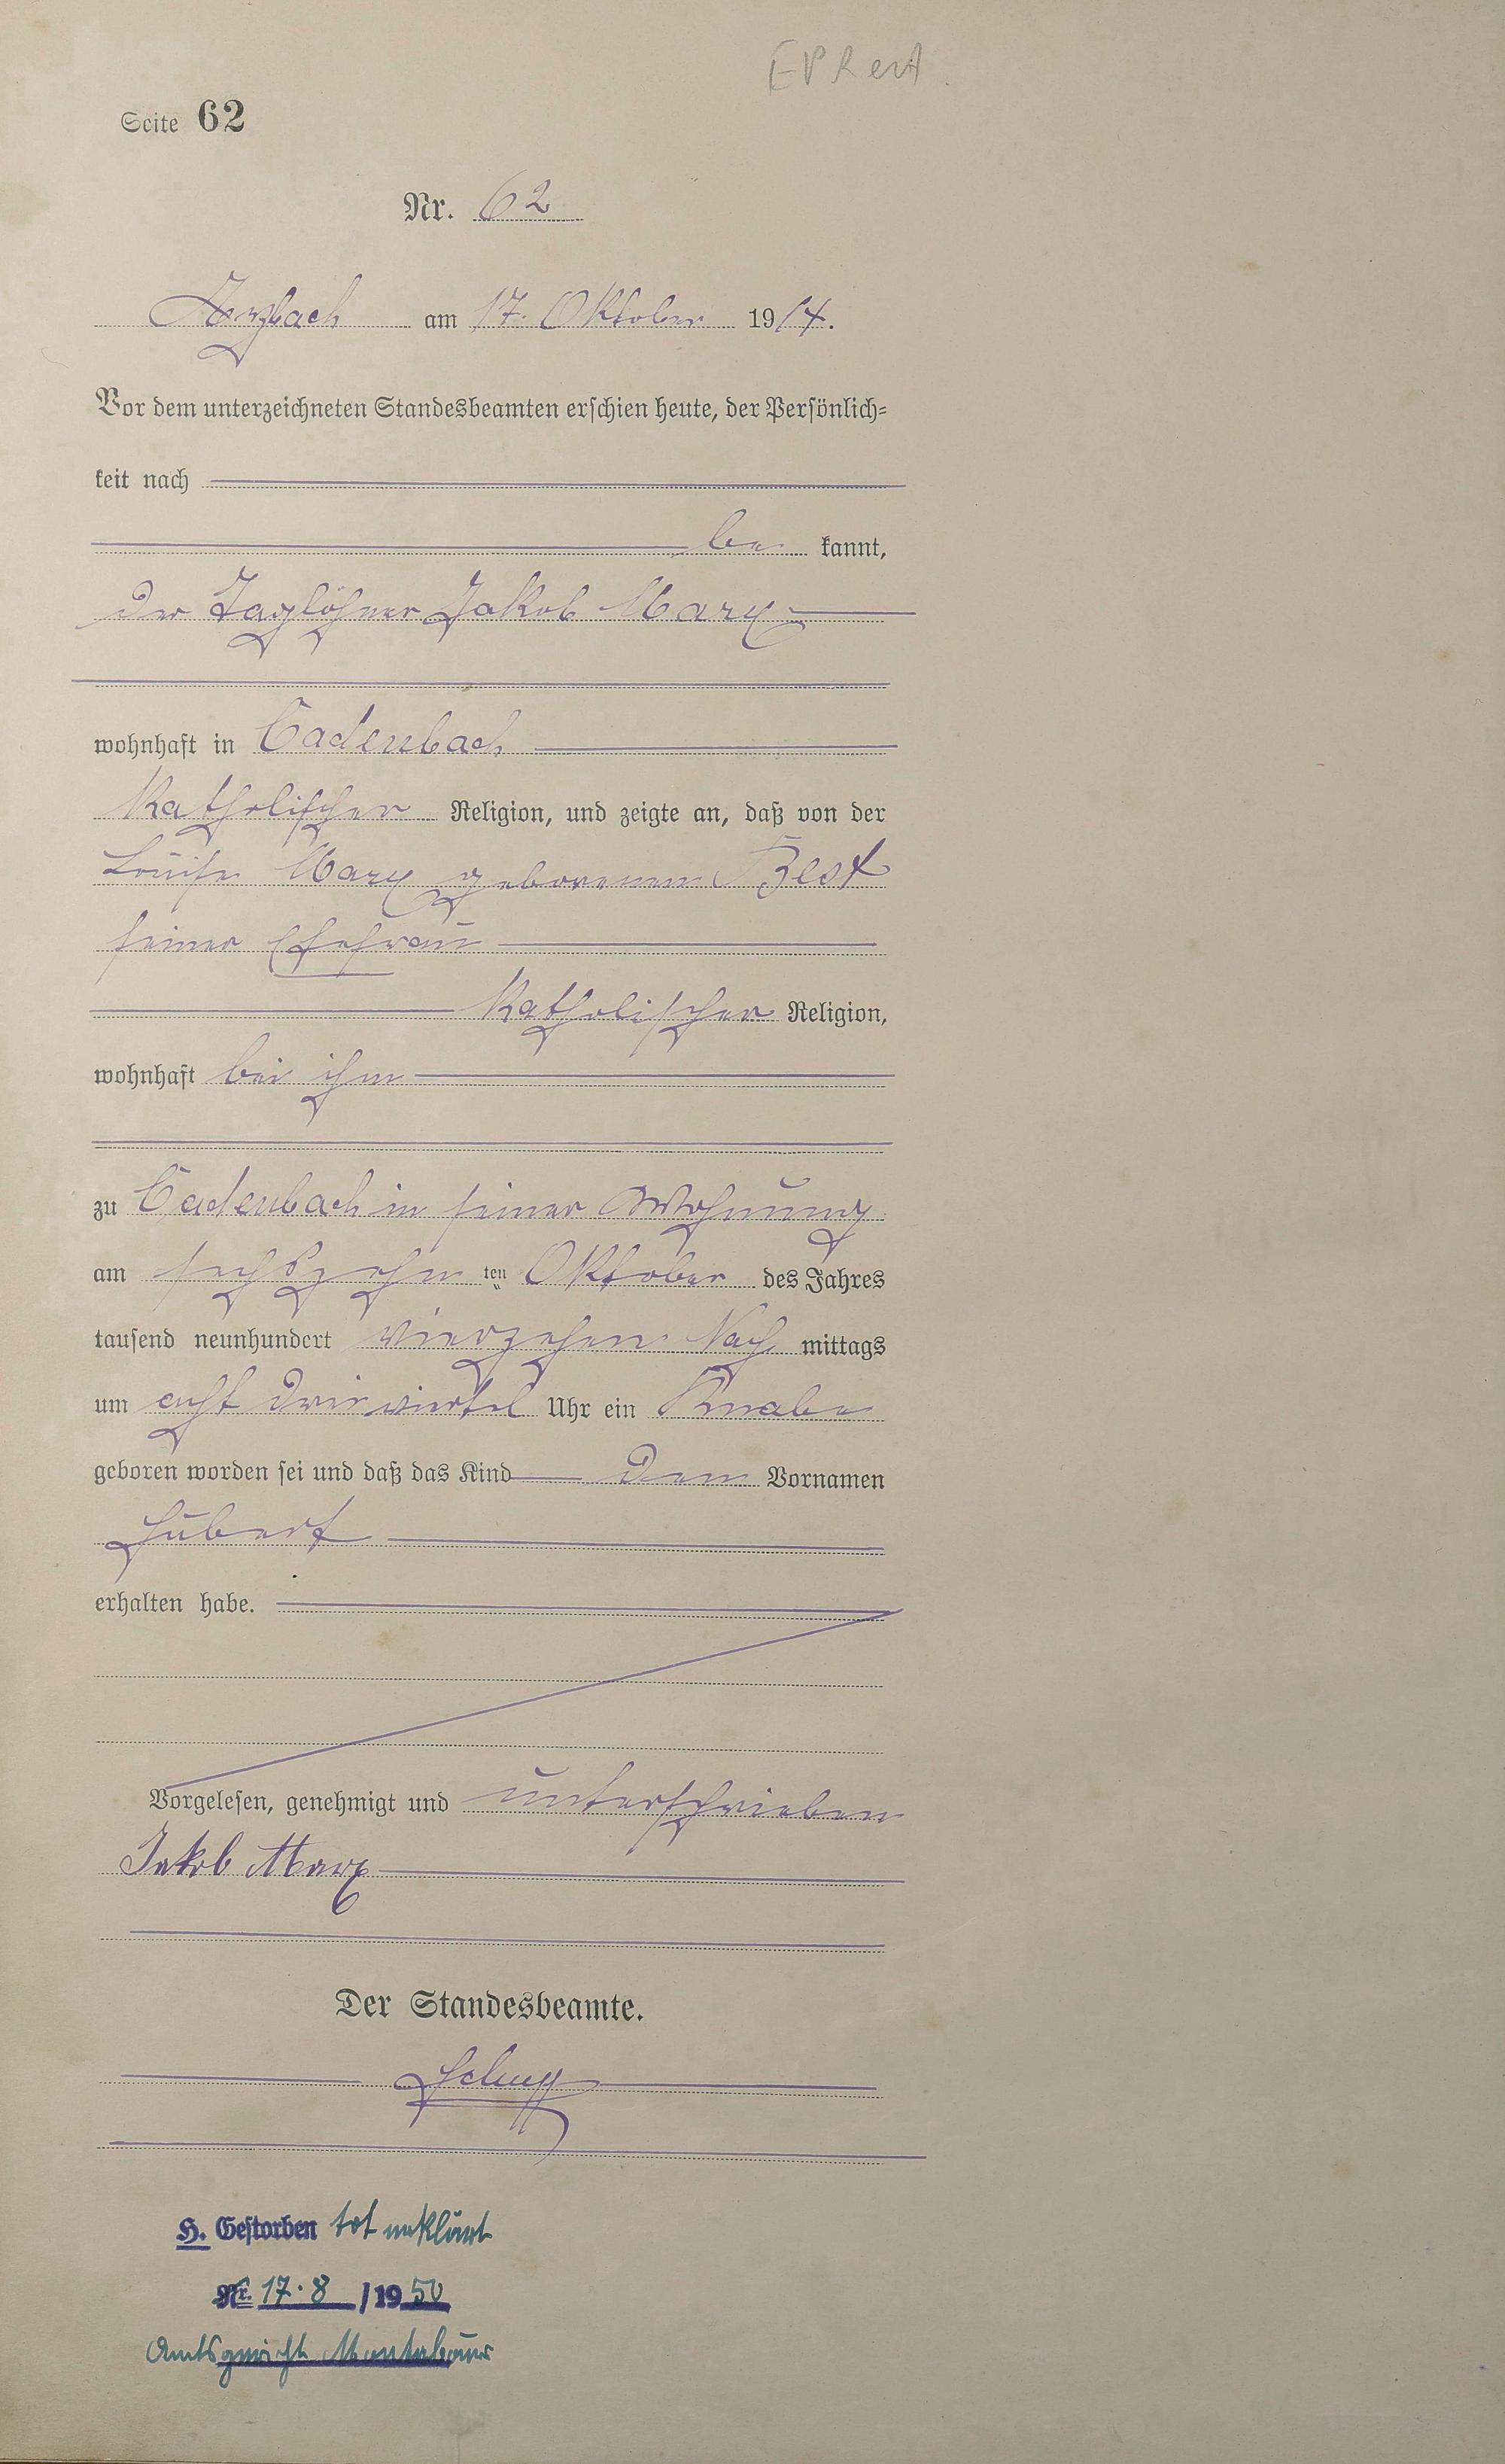 Seite 62
Nr. 62
Arzbach am 17. Oktober 1914.
Vor dem unterzeichneten Standesbeamten erschien heute, der Persönlich-
keit nach
be kannt,
der Taglöhner Jakob Marx
wohnhaft in Cadenbach
katholischer Religion, und zeigte an, daß von der
Louise Marx geborenen Best
seiner Ehefrau
katholischer Religion,
wohnhaft bei ihm
zu Cadenbach in seiner Wohnung
am sechszehn ten Oktober des Jahres
tausend neunhundert vierzehen Nach mittags
um acht dreiviertel Uhr ein Knabe
geboren worden sei und daß das Kind den Vornamen
Hubert
erhalten habe.
Vorgelesen, genehmigt und unterschrieben
Jakob Marx
Der Standesbeamte.
H. Gestorben tot erklärt
Nr. 17.8 /1950
Amtsgericht Montabaur